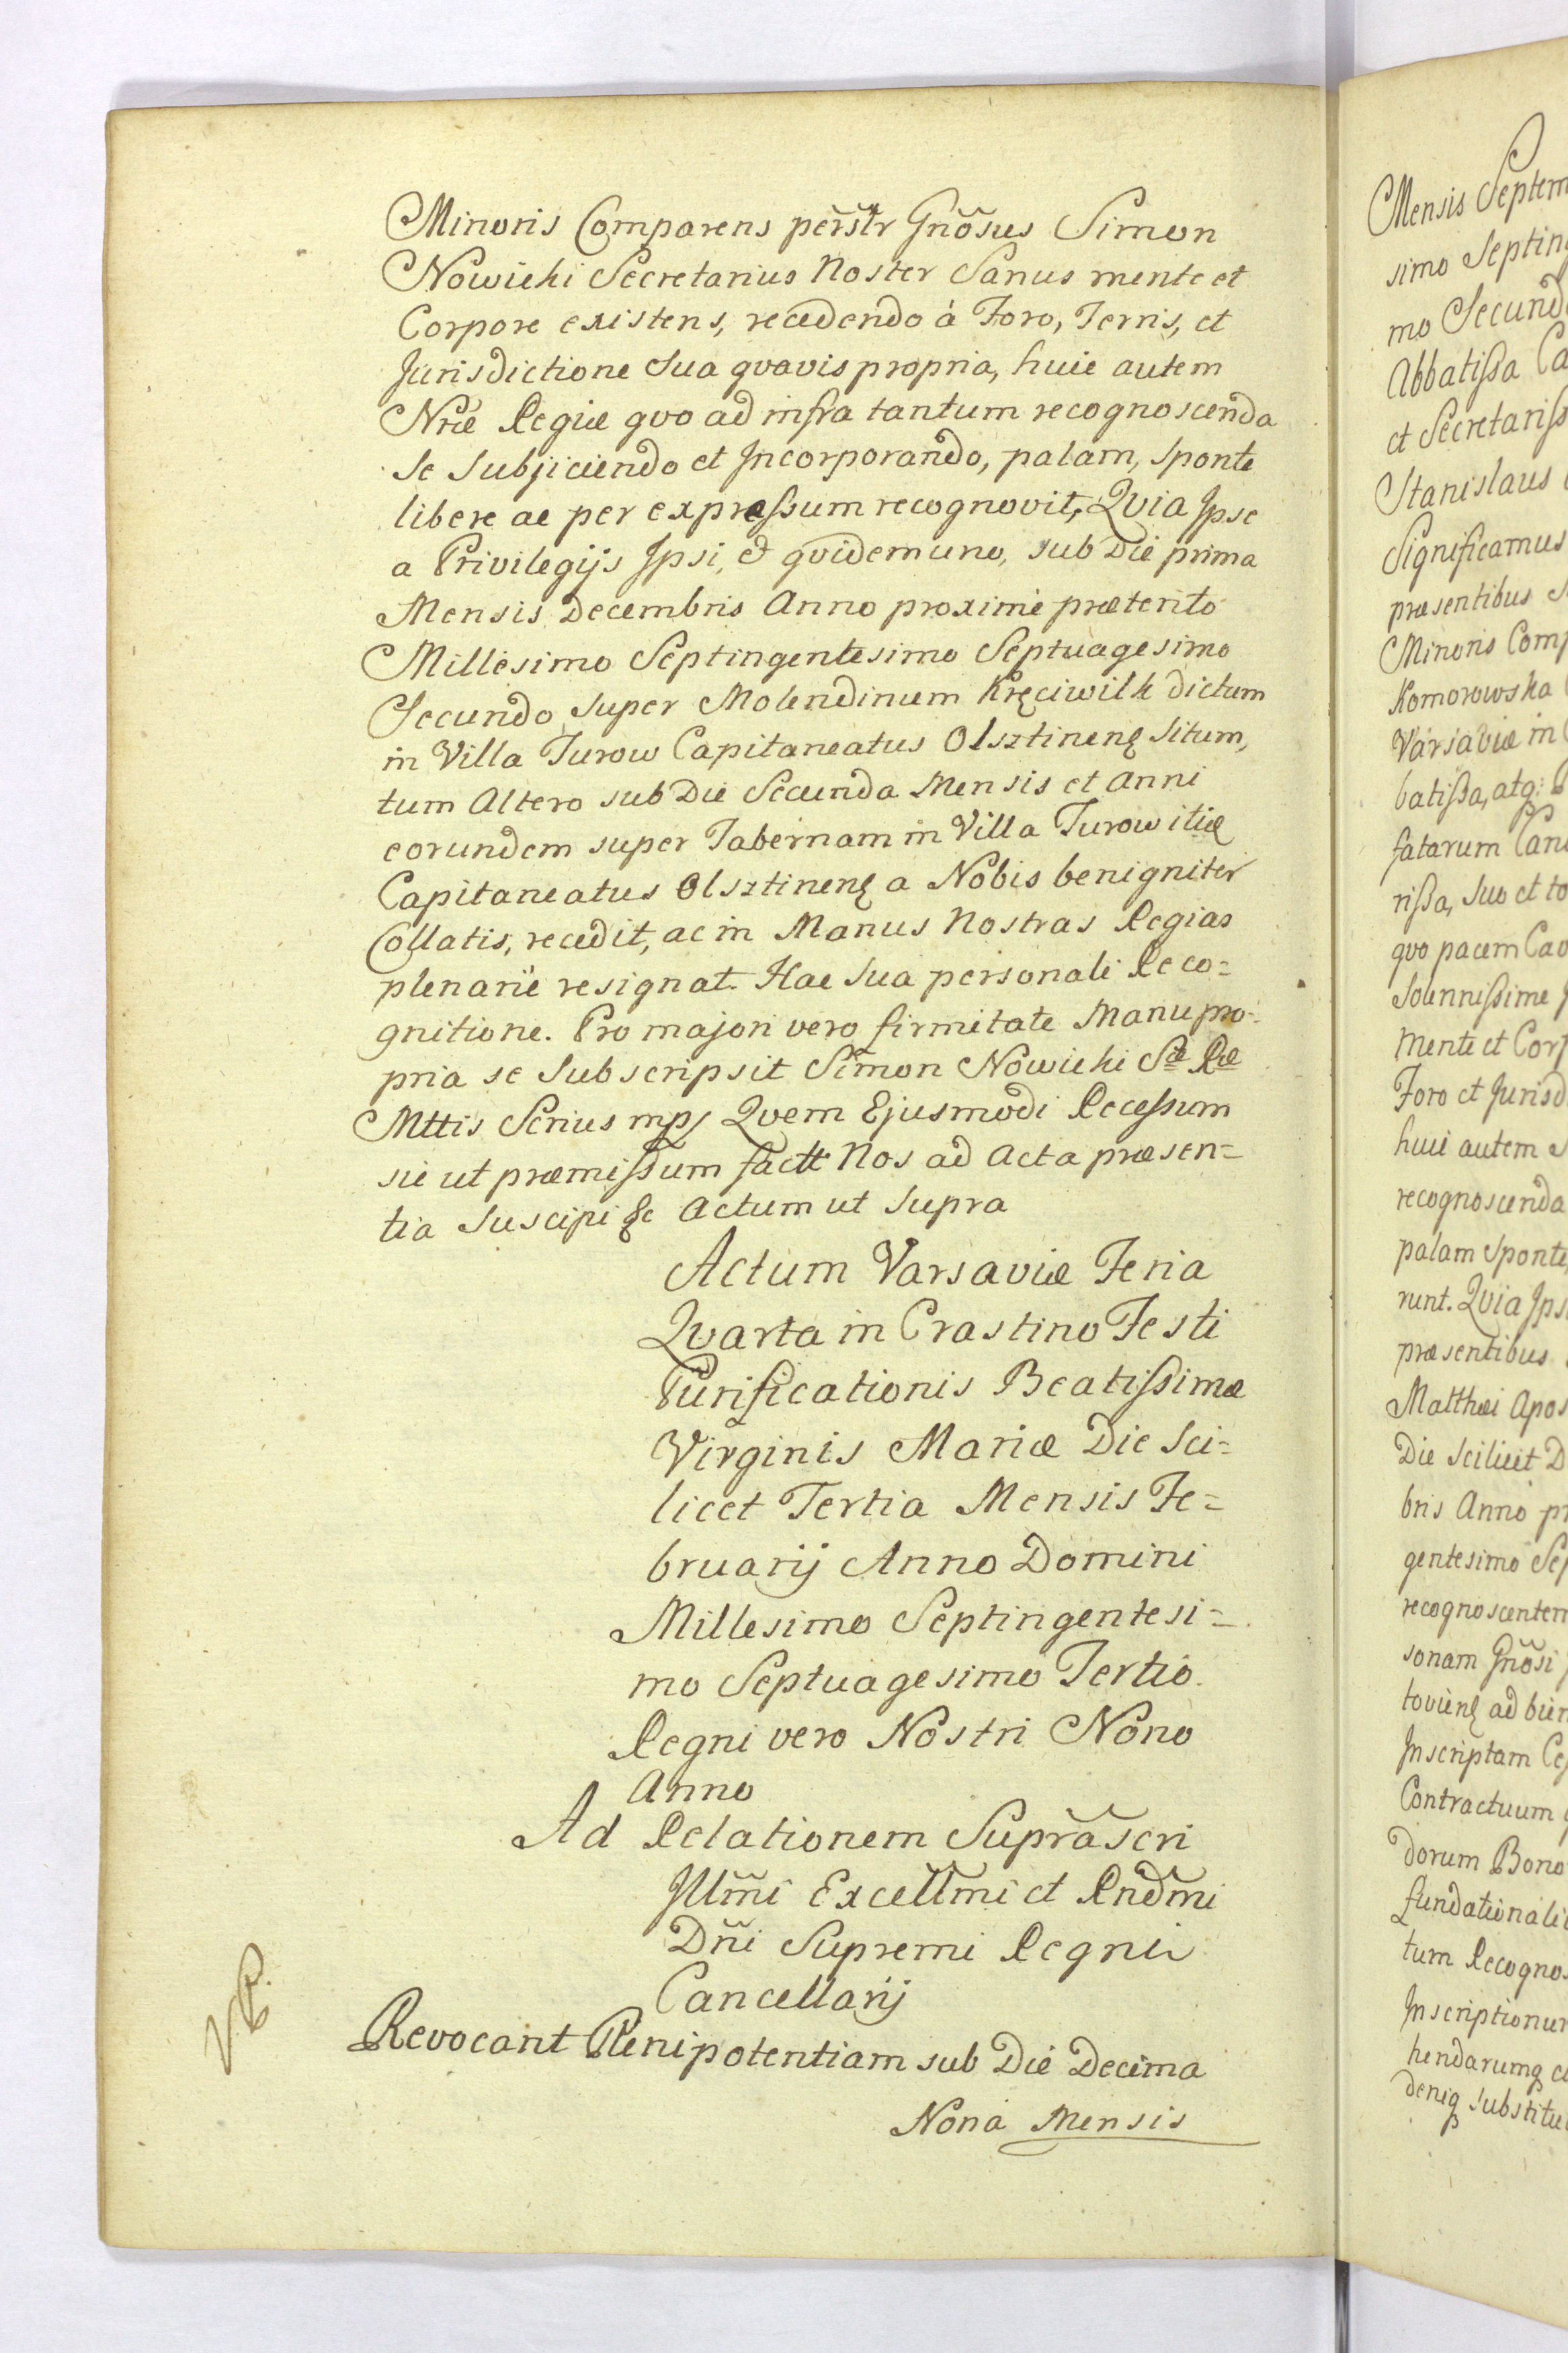 Minoris Comparens persr̃tr Gnõsus Simon
Nowicki Secretarius Noster Sanus mente et
Corpore existens, recedendo à Foro, Terris, et
Jurisdictione Sua qvavis propria, huic autem
Nræ Regiæ qvo ad infra tantum recognoscenda
se Subjiciendo et Incorporando, palam, sponte
libere ac per expressum recognovit, Qvia Ipse
a Privilegijs Ipsi, & qvidem uno, sub Die prima
Mensis Decembris Anno proximè præterito
Millesimo Septingentesimo Septuagesimo
Secundo super Molendinum Kręciwilk dictum
in Villa Turow Capitaneatus Olsztinenę Situm,
tum Altero sub Die Secunda Mensis et Anni
eorundem super Tabernam in Villa Turow itię
Capitaneatus Olsztinenę a Nobis benigniter
Collatis, recedit, ac in Manus Nostras Regias
plenariè resignat. Hac Sua personali Reco=
gnitione. Pro majori vero firmitate Manu pro=
pria se Subscripsit Simon Nowicki Sæ Ræ
Mttis Scrius mp/ Qvem Ejusmodi Recessum
sic ut præmissum factt Nos ad Acta præsen=
tia Suscipi &c Actum ut Supra
Actum Varsaviæ Feria
Qvarta in Crastino Festi
Purificationis Beatissimæ
Virginis Mariæ Die Sci=
licet Tertia Mensis Fe=
bruarij Anno Domini
Millesimo Septingentesi=
mo Septuagesimo Tertio.
Regni vero Nostri Nono
Anno
Ad Relationem Suprascri
Illm̃i Excellm̃i et Rndm̃i
Dñi Supremi Regni
Cancellarij
Revocant Plenipotentiam sub Die Decima
Nona Mensis
Mensis Septem
simo Septin
mo Secund
Abbatissa Ca
et Secretariss
Stanislaus
Significamus
præsentibus
Minoris Comp
Komorowska
Varsaviæ in
batissa, atq:
fatarum Can
rissa, suo et to
qvo pacem Cav
Solennissime
Mente et Corp
Foro et Jurisd
huic autem
recognoscenda
palam Sponte,
runt. Qvia Ips
præsentibus
Matthæi Apos
Die Scilicet D
bris Anno pr
gentesimo Sep
recognoscentem
sonam Gnõsi
tovienę ad bien
Inscriptam Ce
Contractuum
dorum Bono
fundationali
tum Recogno
Inscriptionum
hendarumq
deniq substitu